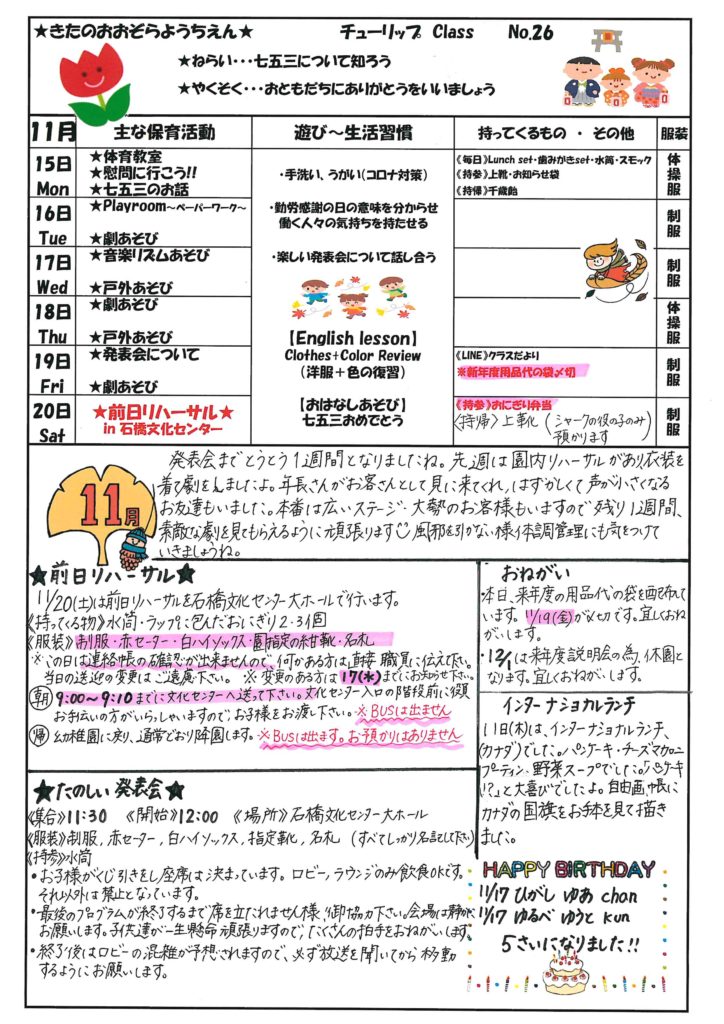 ★きたのおおぞらようちえん★ チューリップ Class No.26
★ねらい・・・七五三について知ろう
★やくそく・・・おともだちにありがとうをいいましょう
11月 主な保育活動 遊び～生活習慣 持ってくるもの ・ その他 服装
15日 Mon
★体育教室
★慰問に行こう!!
★七五三のお話
・手洗い、うがい(コロナ対策)
《毎日》Lunch set・歯みがきset・水筒・スモック
《持参》上靴・お知らせ袋
《持帰》千歳飴
体操服
16日 Tue
★Playroom～ペーパーワーク～
★劇あそび
・勤労感謝の日の意味を分からせ
働く人々の気持ちを持たせる
制服
17日 Wed
★音楽リズムあそび
★戸外あそび
・楽しい発表会について話し合う
制服
18日 Thu
★劇あそび
★戸外あそび
体操服
【English lesson】
Clothes+Color Review
(洋服＋色の復習)
19日 Fri
★発表会について
★劇あそび
《LINE》クラスだより
※新年度用品代の袋〆切
制服
20日 Sat
★前日リハーサル★
in 石橋文化センター
【おはなしあそび】
七五三おめでとう
《持参》おにぎり弁当
〈持帰〉上靴 (シャークの役の子のみ)
預かります
制服
11月
発表会までとうとう1週間となりましたね。先週は園内リハーサルがあり衣装を
着て劇をしましたよ。年長さんがお客さんとして見に来てくれ、はずかしくて声が小さくなる
お友達もいました。本番は広いステージ・大勢のお客様もいますので残り1週間、
素敵な劇を見てもらえるように頑張ります 風邪を引かない様、体調管理にも気をつけて
いきましょうね。
★前日リハーサル★
11/20(土)は前日リハーサルを石橋文化センター大ホールで行います。
《持ってくる物》水筒・ラップに包んだおにぎり2・3個
《服装》制服・赤セーター・白ハイソックス・園指定の紺靴・名札
※この日は連絡帳の確認が出来ませんので、何かある方は直接 職員に伝え下さい。
当日の送迎の変更はご遠慮下さい。 ※変更のある方は17(水)までにお知らせ下さい。
朝 9:00～9:10までに文化センターへ送って下さい。文化センター入口の階段前に役員
お手伝いの方がいらっしゃいますのでお子様をお渡し下さい。※BUSは出ません
帰 幼稚園に戻り、通常どおり降園します。※BUSは出ます。お預かりはありません
おねがい
・本日、来年度の用品代の袋を配布しています
ます。11/19(金)が〆切です。宜しくおね
がいします。
・12/1は来年度説明会の為、休園と
なります。宜しくおねがいします。
インターナショナルランチ
11日(木)は、インターナショナルランチ、
(カナダ)でした。パンケーキ・チーズマカロニ
プーティン、野菜スープでした。「パンケーキ
!?」と大喜びでしたよ。自由画帳に
カナダの国旗をお手本を見て描き
ました。
★たのしい発表会★
《集合》11:30 《開始》12:00 《場所》石橋文化センター大ホール
《服装》制服，赤セーター，白ハイソックス，指定靴，名札 (すべてしっかり名記して下さい)
《持参》水筒
・お子様がくじ引きをし座席は決まっています。ロビー，ラウンジのみ飲食OKです。
それ以外は禁止となっています。
・最後のプログラムが終了するまで席を立たれません様、御協力下さい。会場は静かに
お願いします。子供達が一生懸命頑張りますので、たくさんの拍手をおねがいします。
・終了後はロビーの混雑が予想されますので、必ず放送を聞いてから移動
するようにお願いします。
HAPPY BiRTHDAY
11/17 ひがし ゆあ chan
11/17 ゆるべ ゆうと kun
5さいになりました!!